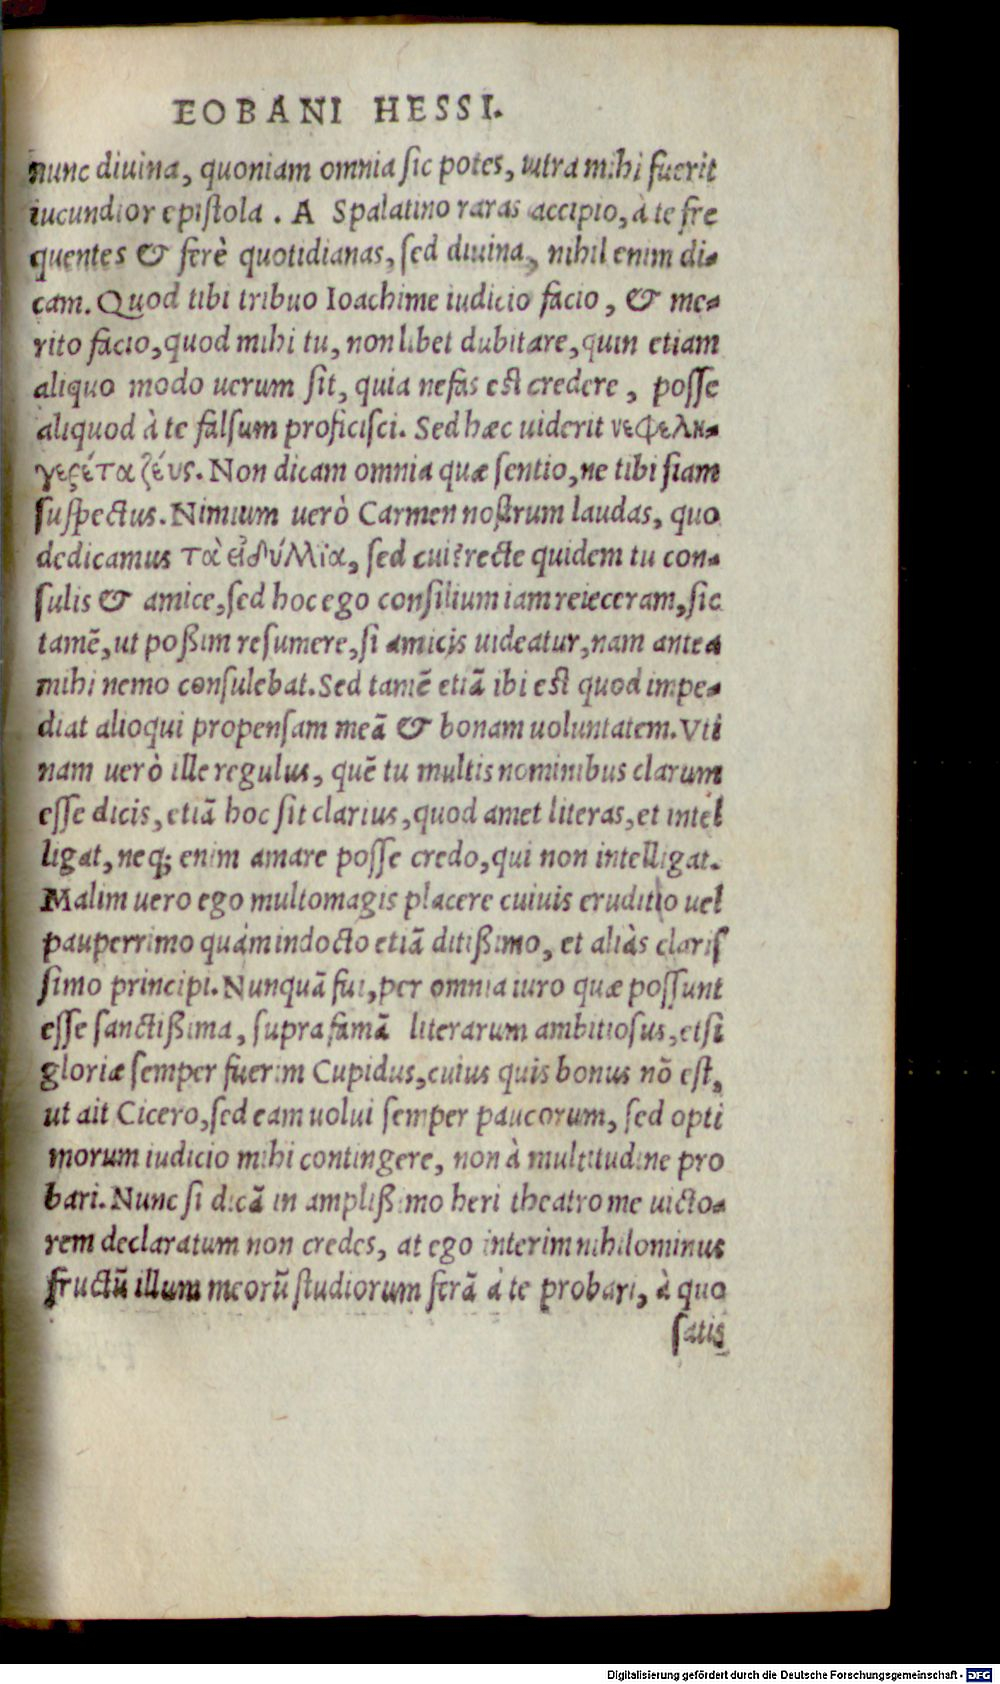 EOBANI HESSI.
nunc diuina, quoniam omnia sic potes, utra mihi fuerit
iucundior epistola . A Spalatino raras accipio, à te fre
quentes & ferè quotidianas, sed diuina, nihil enim di-
cam. Quod tibi tribuo Ioachime iudicio facio, & me-
rito facio, quod mihi tu, non libet dubitare, quin etiam
aliquo modo uerum sit, quia nefas est credere, posse
aliquod à te falsum proficisci. Sed hæc uiderit νεφελη-
γερέτα ζέυς. Non dicam omnia quæ sentio, ne tibi fiam
suspectus. Nimium uerò Carmen nostrum laudas, quo
dedicamus τὰ εἰδύλλϊα, sed cui? recte quidem tu con-
sulis & amice, sed hoc ego consilium iam reieceram, sic
tamẽ, ut poßim resumere, si amicis uideatur, nam antea
mihi nemo consulebat. Sed tamẽ etiã ibi est quod impe-
diat alioqui propensam meã & bonam uoluntatem. Vti
nam uerò ille regulus, quẽ tu multis nominibus clarum
esse dicis, etiã hoc sit clarius, quod amet literas, et intel
ligat, neq; enim amare posse credo, qui non intelligat.
Malim uero ego multomagis placere cuiuis erudito uel
pauperrimo quàm indocto etiã ditißimo, et aliàs claris
simo principi. Nunquã fui, per omnia iuro quæ possunt
esse sanctißima, supra famã literarum ambitiosus, etsi
gloriæ semper fuerim Cupidus, cuius quis bonus nõ est,
ut ait Cicero, sed eam uolui semper paucorum, sed opti
morum iudicio mihi contingere, non à multitudine pro
bari. Nunc si dicã in amplißimo heri theatro me uicto-
rem declaratum non credes, at ego interim nihilominus
fructũ illum meorũ studiorum ferã à te probari, à quo
satis
Digitalisierung gefördert durch die Deutsche Forschungsgemeinschaft - DFG